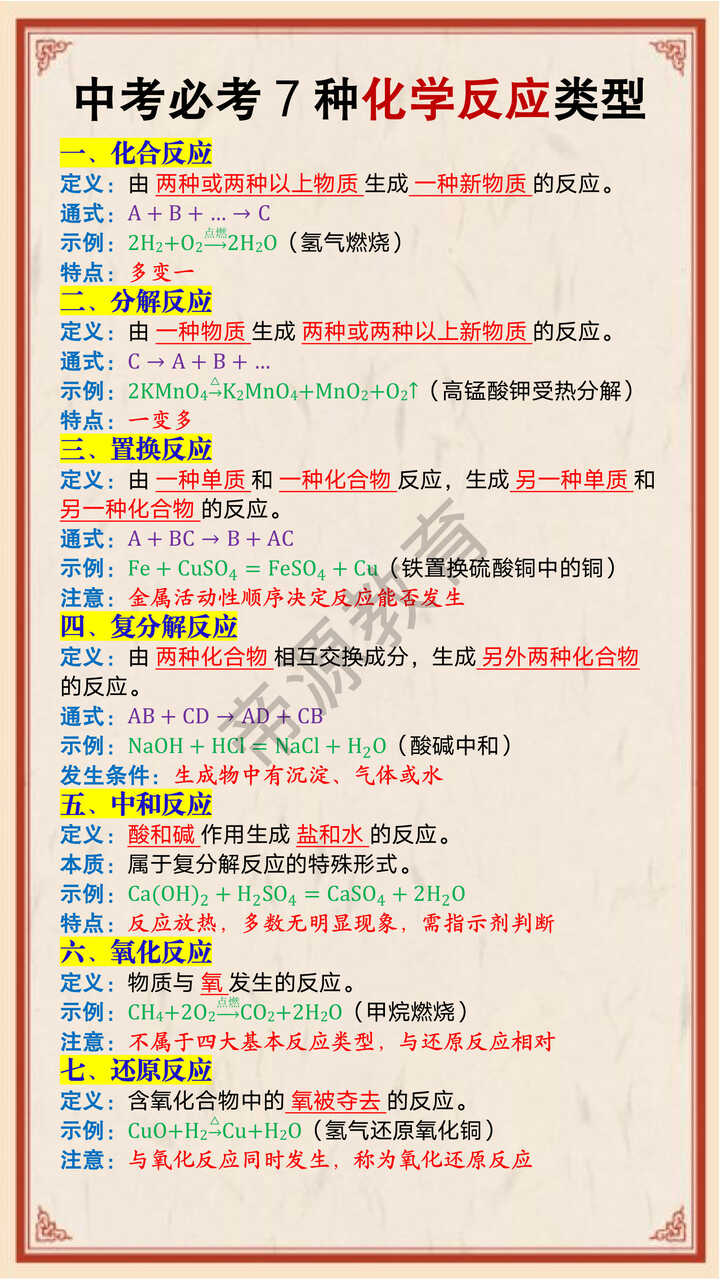 中考必考7种化学反应类型
一、化合反应
定义：由 两种或两种以上物质 生成 一种新物质 的反应。
通式：A + B + … → C
示例：2H₂+O₂—点燃→2H₂O（氢气燃烧）
特点：多变一
二、分解反应
定义：由 一种物质 生成 两种或两种以上新物质 的反应。
通式：C → A + B + …
示例：2KMnO₄—△→K₂MnO₄+MnO₂+O₂↑（高锰酸钾受热分解）
特点：一变多
三、置换反应
定义：由 一种单质 和 一种化合物 反应，生成 另一种单质 和
另一种化合物 的反应。
通式：A + BC → B + AC
示例：Fe + CuSO₄ = FeSO₄ + Cu（铁置换硫酸铜中的铜）
注意：金属活动性顺序决定反应能否发生
四、复分解反应
定义：由 两种化合物 相互交换成分，生成 另外两种化合物
的反应。
通式：AB + CD → AD + CB
示例：NaOH + HCl = NaCl + H₂O（酸碱中和）
发生条件：生成物中有沉淀、气体或水
五、中和反应
定义：酸和碱 作用生成 盐和水 的反应。
本质：属于复分解反应的特殊形式。
示例：Ca(OH)₂ + H₂SO₄ = CaSO₄ + 2H₂O
特点：反应放热，多数无明显现象，需指示剂判断
六、氧化反应
定义：物质与 氧 发生的反应。
示例：CH₄+2O₂—点燃→CO₂+2H₂O（甲烷燃烧）
注意：不属于四大基本反应类型，与还原反应相对
七、还原反应
定义：含氧化合物中的 氧被夺去 的反应。
示例：CuO+H₂—△→Cu+H₂O（氢气还原氧化铜）
注意：与氧化反应同时发生，称为氧化还原反应
帝源教育